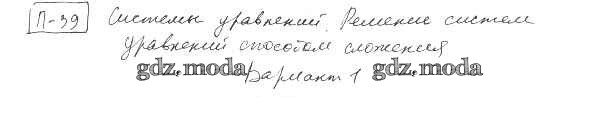 П-39 Системы уравнений. Решение систем
уравнений способом сложения
gdz.moda Вариант 1 gdz.moda